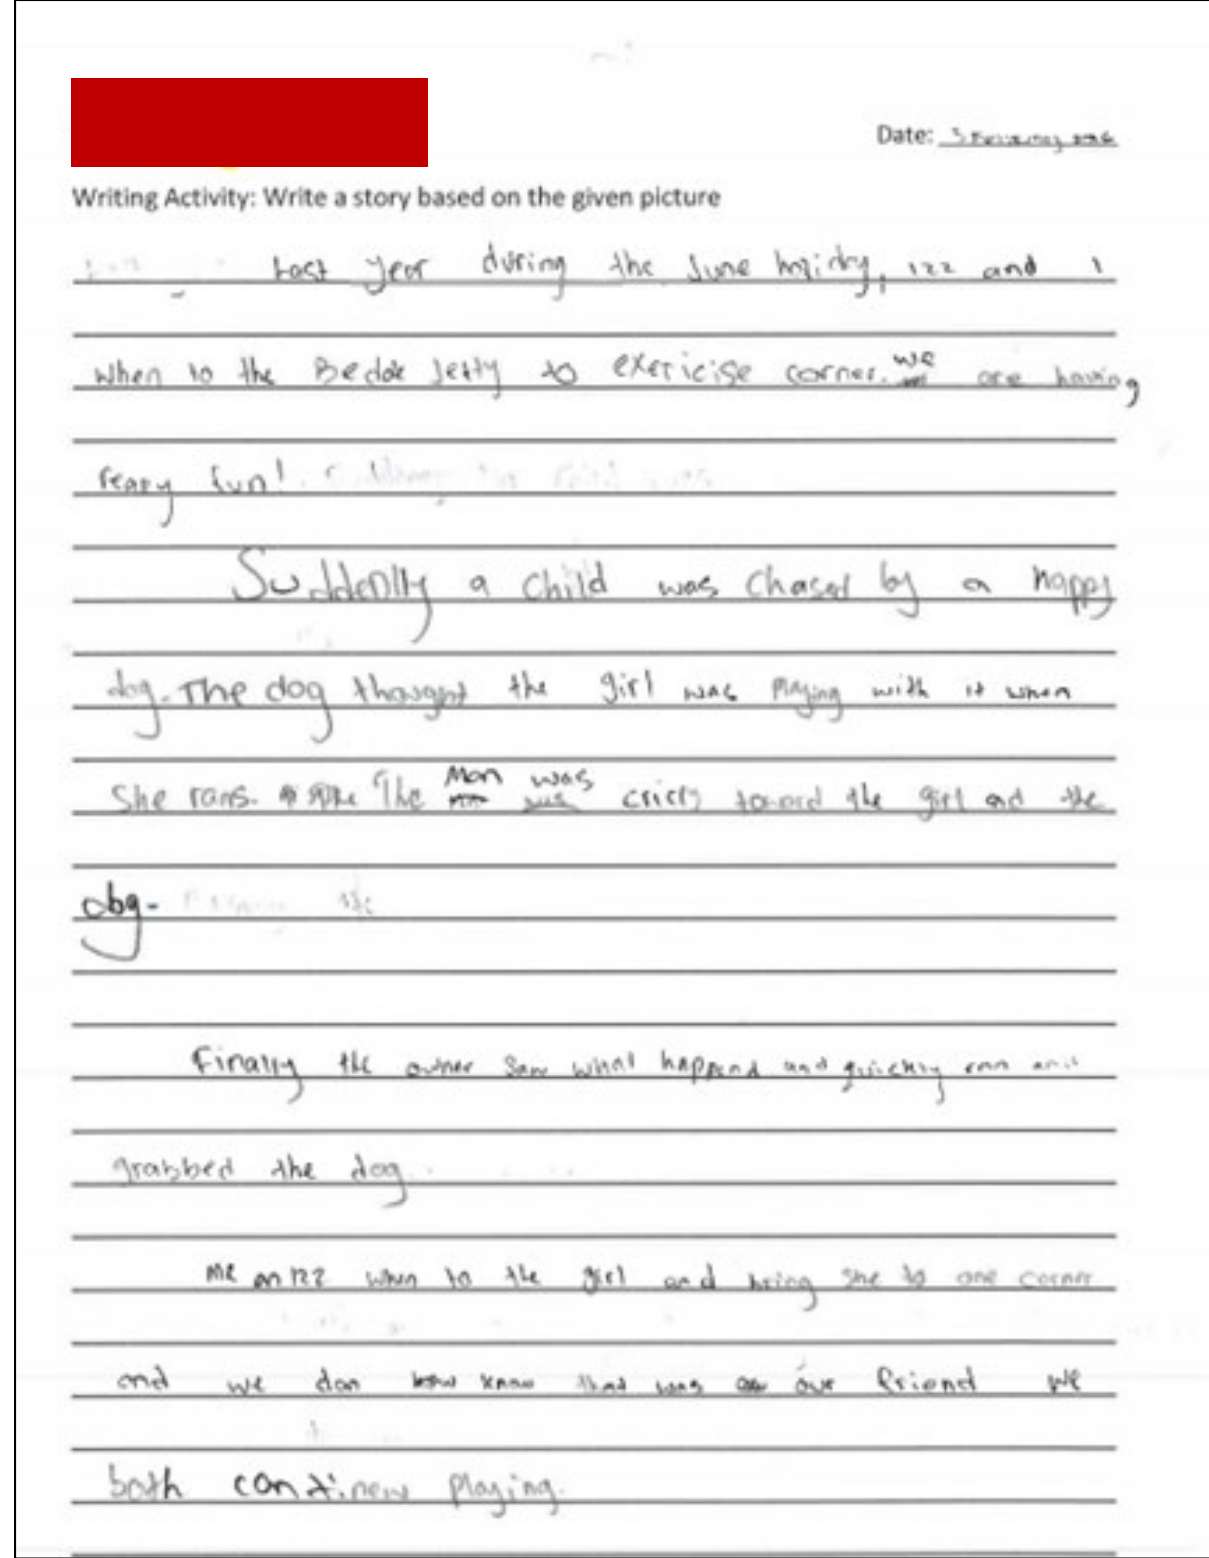 Date: 3 February
Writing Activity: Write a story based on the given picture
Last year during the June holiday, izz and I
when to the Bedok Jetty to exericise corner. we are having
reary fun!
Suddenlly a child was chased by a happy
dog. The dog thought the girl was playing with it when
she rans. The man was toward the girl and the
dog.
Finally the owner saw what happend and quickly ran and
grabbed the dog.
me an izz when to the girl and bring she to one corner
and we don know was our friend we
both continew playing.